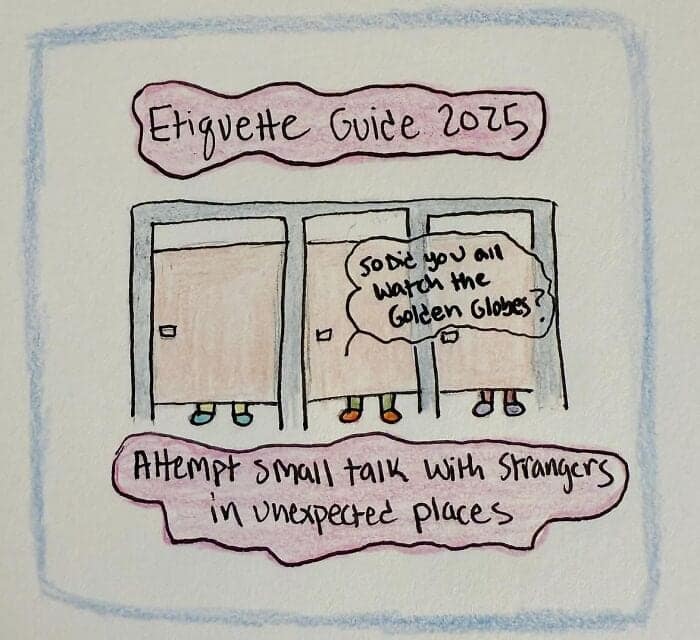 Etiquette Guide 2025
So Did you all
watch the
Golden Globes?
Attempt small talk with Strangers
in unexpected places